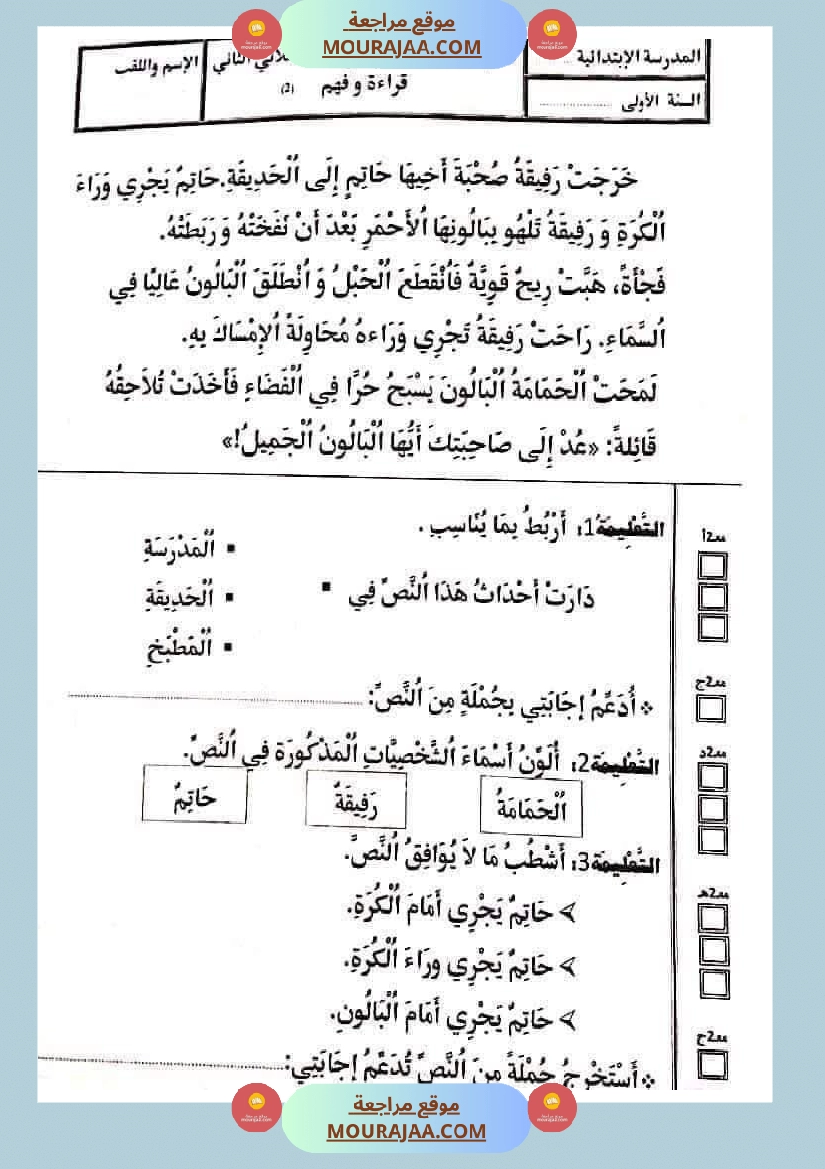 موقع مراجعة
MOURAJAA.COM
المدرسة الإبتدائية ...
السنة الأولى ..................
الثاني
قراءة و فهم (2)
الإسم واللقب
خَرَجَتْ رَفِيقَةُ صُحْبَةَ أَخِيهَا حَاتِمٍ إِلَى اُلْحَدِيقَةِ.حَاتِمٌ يَجْرِي وَرَاءَ
اُلْكُرَةِ وَ رَفِيقَةُ تَلْهُو بِبَالُونِهَا اُلأَحْمَرِ بَعْدَ أَنْ نَفَخَتْهُ وَ رَبَطَتْهُ.
فَجْأَةً، هَبَّتْ رِيحٌ قَوِيَّةٌ فَاُنْقَطَعَ اُلْحَبْلُ وَ اُنْطَلَقَ اُلْبَالُونُ عَالِيًا فِي
اُلسَّمَاءِ. رَاحَتْ رَفِيقَةُ تَجْرِي وَرَاءهُ مُحَاوِلَةً اُلإِمْسَاكَ بِهِ.
لَمَحَتْ اُلْحَمَامَةُ اُلْبَالُونَ يَسْبَحُ حُرًّا فِي اُلْفَضَاءِ فَأَخَذَتْ تُلاَحِقُهُ
قَائِلةً: «عُدْ إِلَى صَاحِبَتِكَ أَيُّهَا اُلْبَالُونُ اُلْجَمِيلُ!»
التَّعْلِيمَة1: أَرْبُطُ بِمَا يُنَاسِبِ .
مع2أ
▪ اُلْمَدْرَسَةِ
دَارَتْ أَحْدَاثُ هَذَا اُلنَّصِّ فِي ▪
▪ اُلْحَدِيقَةِ
▪ اُلْمَطْبَخِ
مع2ج
❖ أُدَعِّمُ إِجَابَتِي بِجُمْلَةٍ مِنَ اُلنَّصِّ: ..................
مع2د
التَّعْلِيمَة2: أُلَوِّنُ أَسْمَاءَ اُلشَّخْصِيَّاتِ اُلْمَذْكُورَة فِي اُلنَّصِّ.
اُلْحَمَامَةُ
رَفِيقَةُ
حَاتِمٌ
التَّعْلِيمَة3: أَشْطُبُ مَا لاَ يُوَافِقُ اُلنَّصَّ.
مع2هـ
➢ حَاتِمٌ يَجْرِي أَمَامَ اُلْكُرَةِ.
➢ حَاتِمٌ يَجْرِي ورَاءَ اُلْكُرَةِ.
➢ حَاتِمٌ يَجْرِي أَمَامَ اُلْبَالُونِ.
مع2ح
❖ أَسْتَخْرِجُ جُمْلَةً مِنَ اُلنَّصِّ تُدَعِّمُ إِجَابَتِي: ..................
موقع مراجعة
MOURAJAA.COM